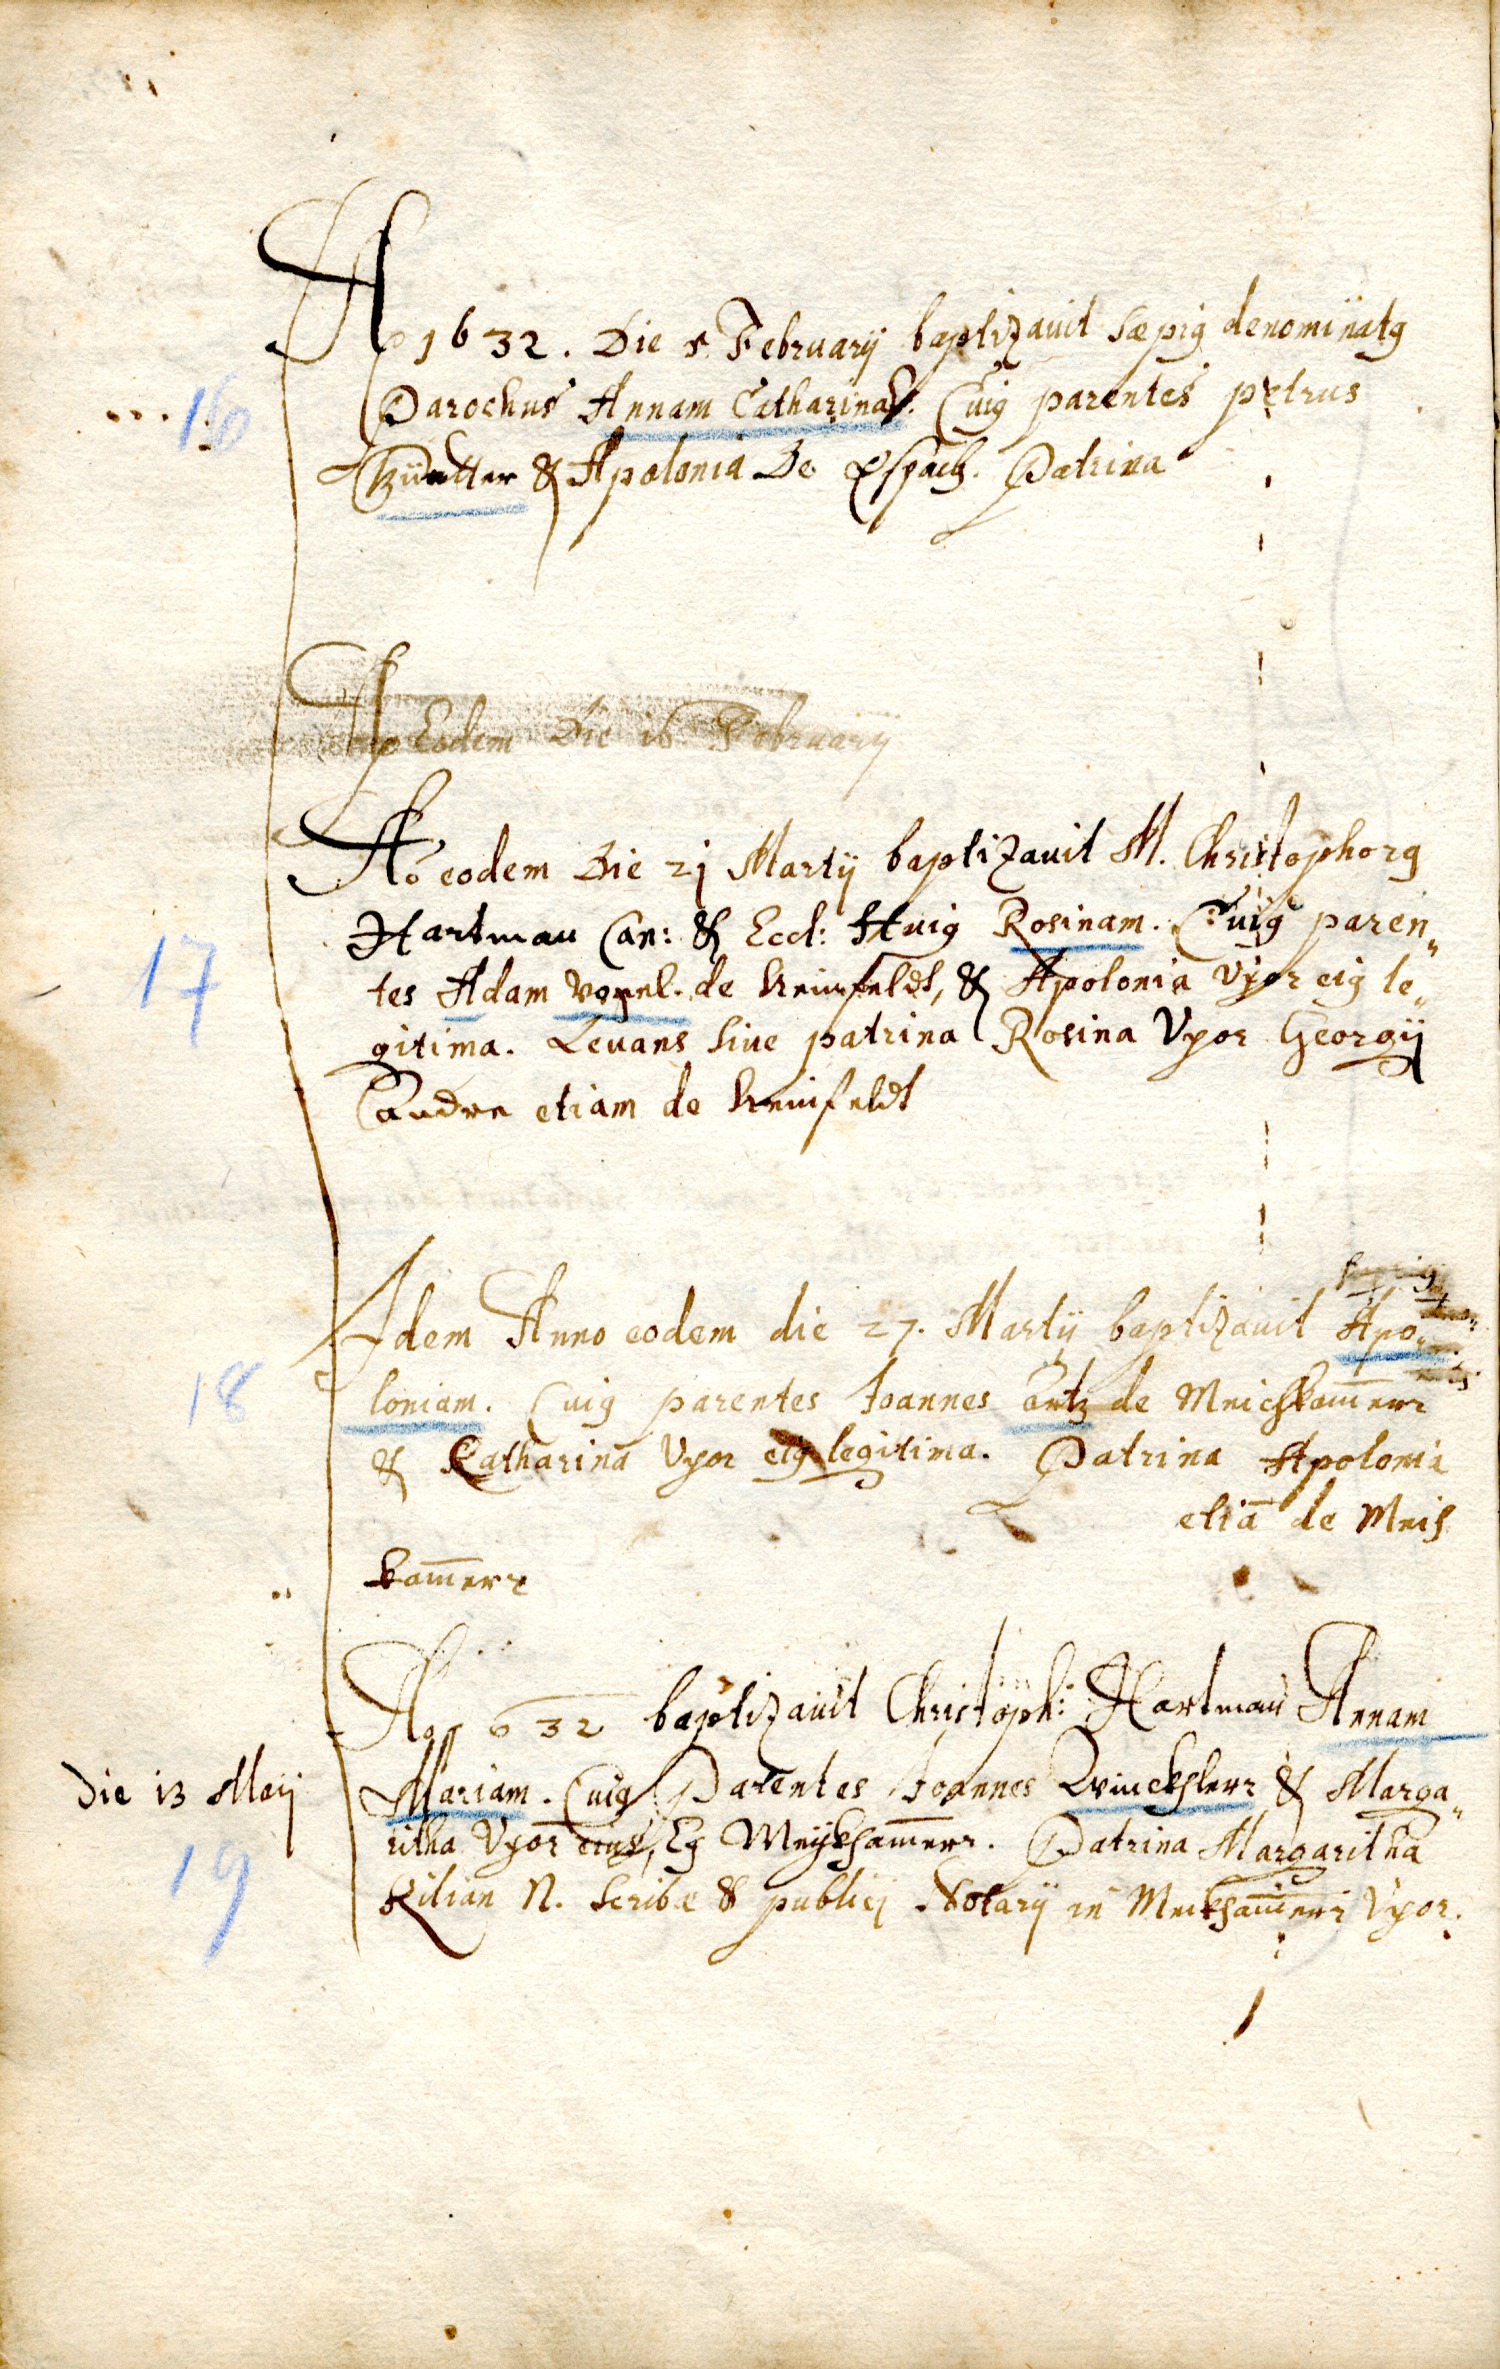 Ao 1632. Die 5 February baptizauit sæpiꝰ denominatꝰ
16
Parochus Annam Catharinā. Cuiꝰ parentes petrus
& Apolonia De Espach. Patrina
Ao Eodem Die 16 February
Ao eodem Die 21 Martij baptizauit M. Christophorꝰ
Hartman Can: & Eccl: Huiꝰ Rosinam. Cuiꝰ paren„
17
tes Adam Vogel de Heinfeldt, & Apolonia Vxor eiꝰ le„
gitima. Leuans siue patrina Rosina Vxor Georgij
etiam de Heinfeldt
Idem Anno eodem die 27. Martij baptizauit Apo„
18
loniam. Cuiꝰ parentes Joannes Artz de Meichkam̄err
& Catharina Vxor eiꝰ legitima. Patrina Apolonia
etiā de Meich
kam̄err
Ao 632 baptizauit Christoph: Hartman Annam
Die 13 Maij
Mariam. Cuiꝰ Parentes Joannes & Marga„
ritha Vxor eius, Meijkham̄err. Patrina Margaritha
19
Kilian N. Scribæ & publicj Notarij in Meikham̄err Vxor.